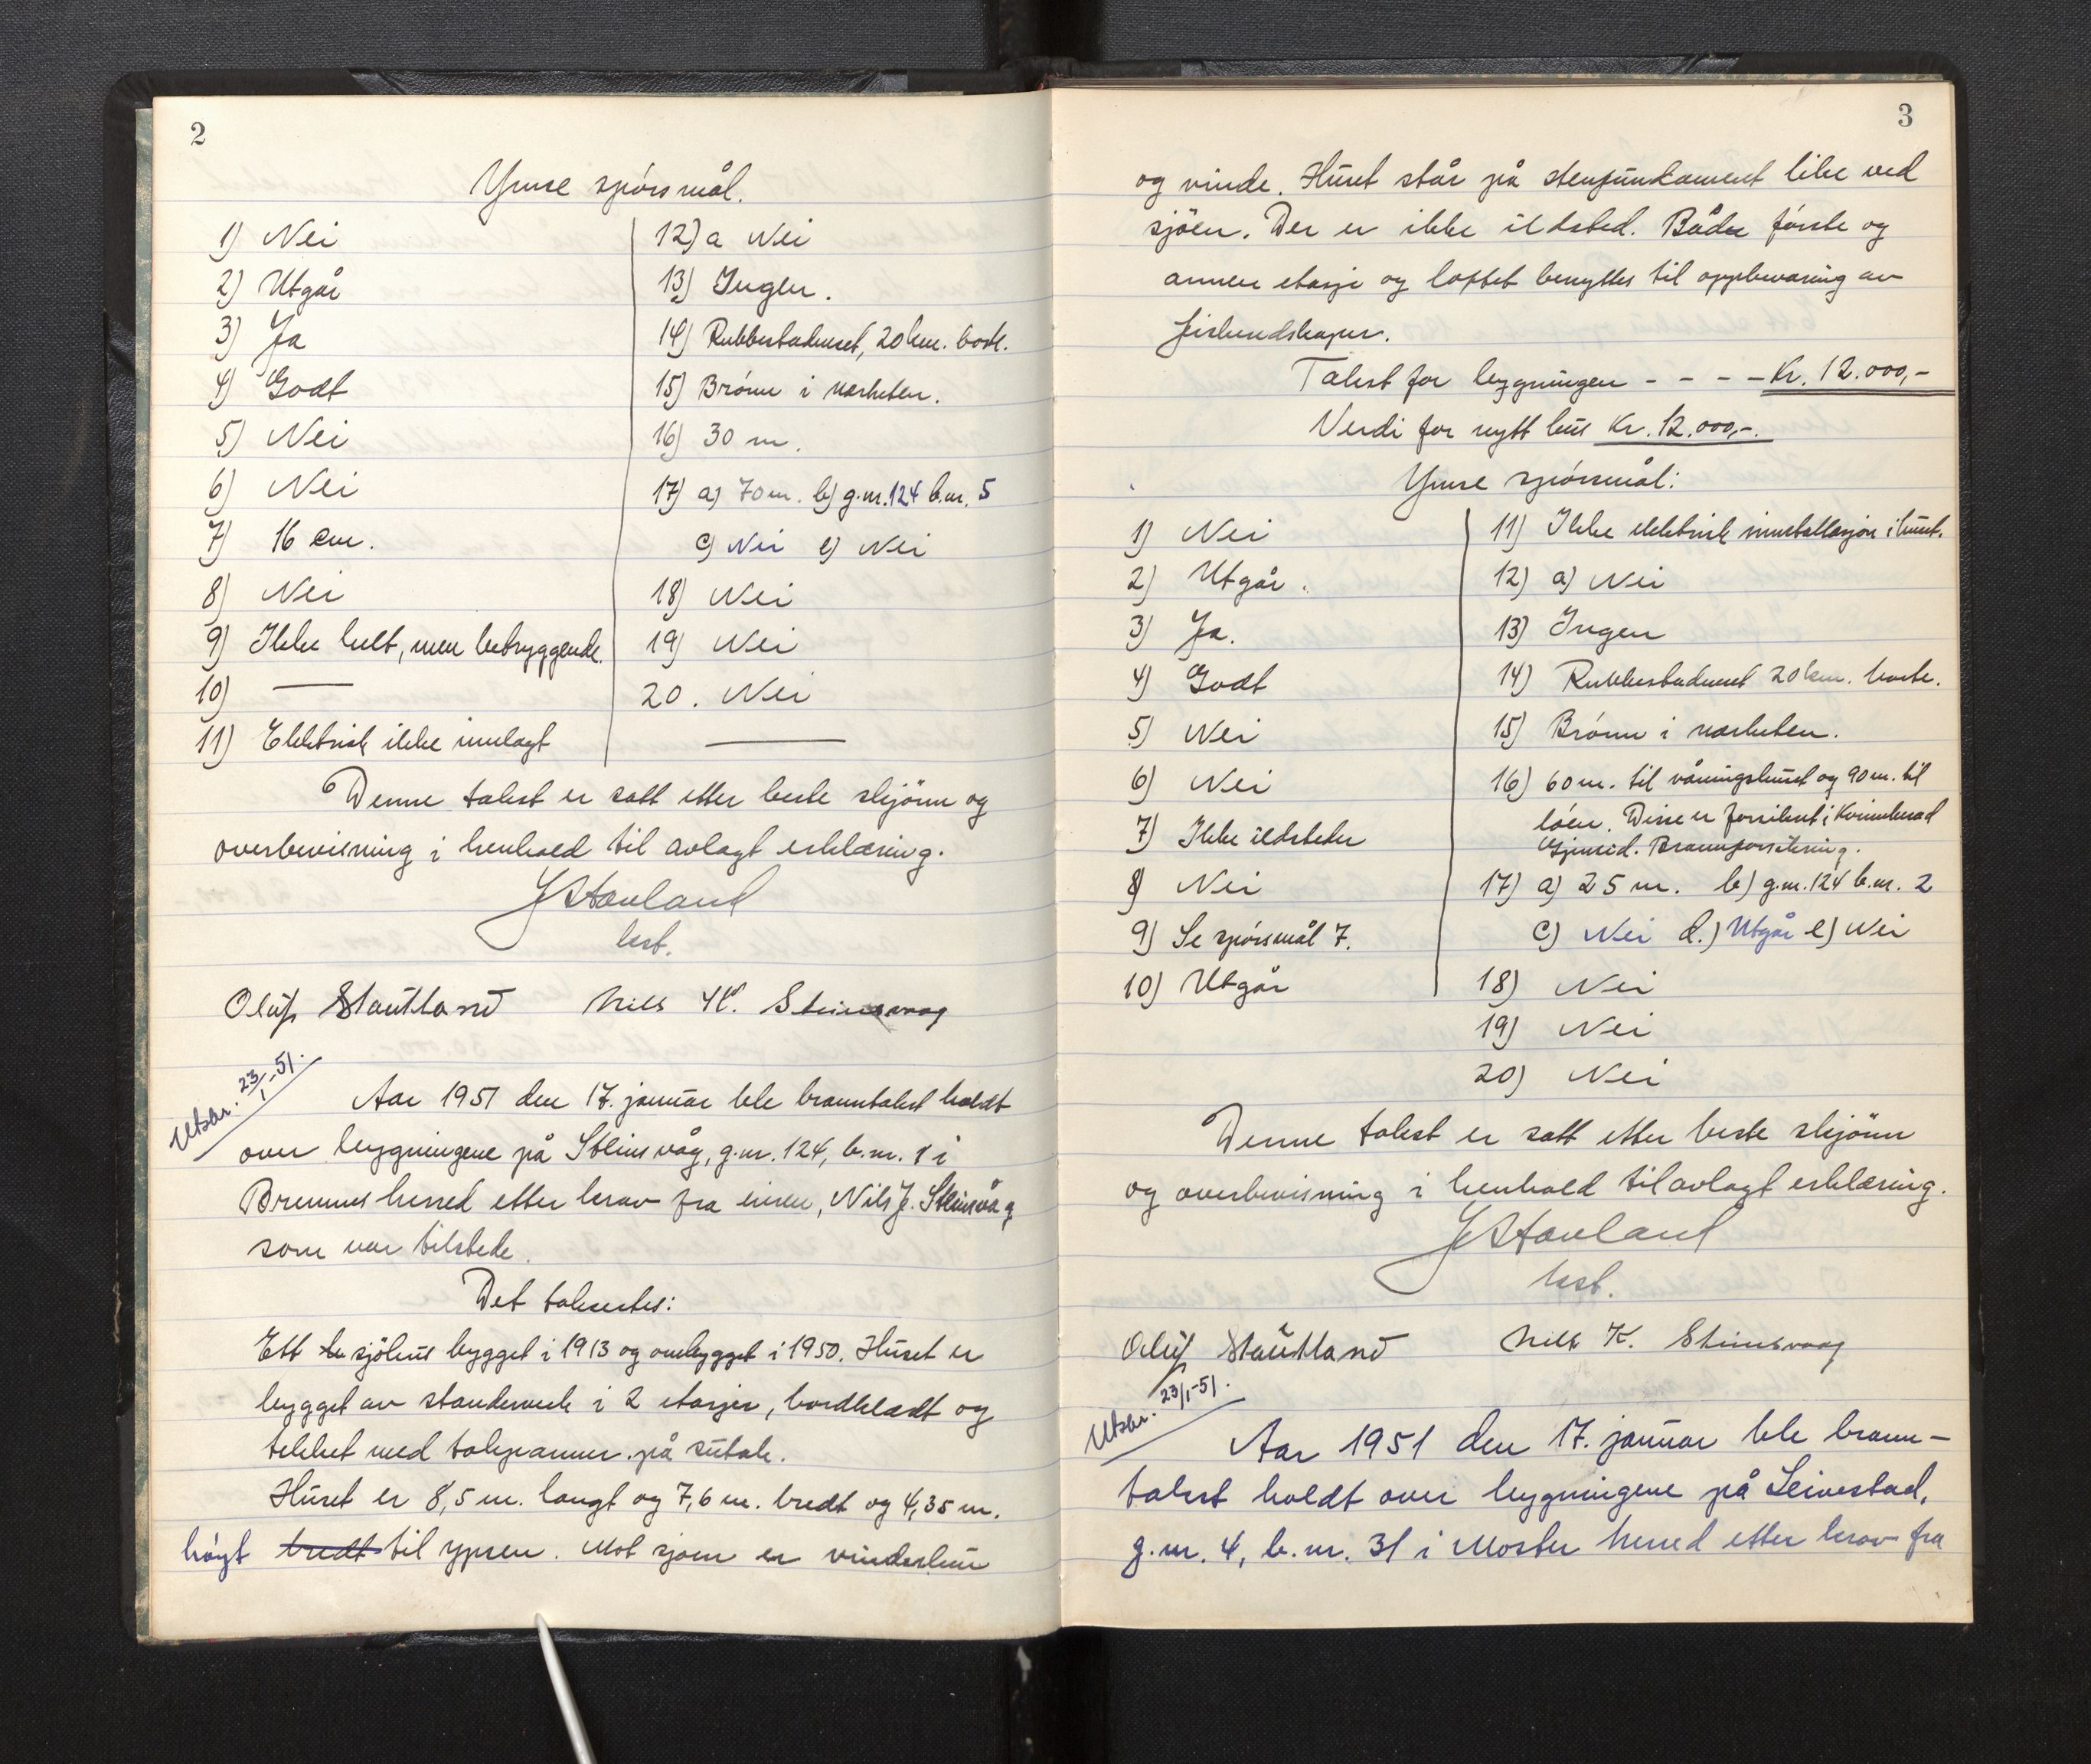 2
Ymse spörsmål.
1) Nei
2) Utgår
3) Ja
4) Godt
5) Nei
6) Nei
7) 16 cm.
8) Nei
9) Ikke helt, men betryggende.
10) —
11) Elektrisk ikke innlagt
12) a Nei
13) Ingen.
14) Rubbestadneset, 20 km. borte.
15) Brönn i nærheten.
16) 30 m.
17) a) 70 m. b) g.nr. 124 b.nr. 5
c) Nei e) Nei
18) Nei
19) Nei
20. Nei
Denne takst er satt etter beste skjönn og
overbevisning i henhold til avlagt erklæring.
J Stavland
lest.
Oluf Stautland Nils K. Steinsvaag
Utskr. 23/1-51.
Aar 1951 den 17. januar ble branntakst holdt
over bygningene på Steinsvåg, g.nr. 124, b.nr. 1 i
Bremnes herred etter krav fra eieren, Nils J. Steinsvåg
som var tilstede.
Det taksertes:
Ett sjöhus bygget i 1913 og ombygget i 1950. Huset er
bygget av standerverk i 2 etasjer, bordklædt og
tekket med takpanner på sutak.
Huset er 8,5 m. langt og 7,6 m. bredt og 4,35 m.
högt bredt til ypsen. Mot sjöen er vinderhus
3
og vinde. Huset står på stenfundament like ved
sjöen. Der er ikke ildsted. Både förste og
annen etasje og loftet benyttes til oppbevaring av
fiskeredskaper.
Takst for bygningen - - - - Kr. 12.000,-
Verdi for nytt hus Kr. 12.000,-.
Ymse spörsmål:
1) Nei
2) Utgår.
3) Ja.
4) Godt
5) Nei
6) Nei
7) Ikke ildsteder
8) Nei
9) Se spörsmål 7.
10) Utgår
11) Ikke elektrisk innstallasjon i huset.
12) a) Nei
13) Ingen
14) Rubbestadneset 20 km. borte.
15) Brönn i nærheten.
16) 60 m. til våningshuset og 90 m. til
löen. Disse er forsikret i Kvinnherad
Gjensid. Brannforsikring.
17) a) 25 m. b) g.nr. 124 b.nr. 2
c) Nei d.) Utgår e) Nei
18) Nei
19) Nei
20) Nei
Denne takst er satt etter beste skjönn
og overbevisning i henhold til avlagt erklæring.
J Stavland
lest.
Oluf Stautland Nils K. Steinsvaag
Utskr. 23/1-51.
Aar 1951 den 17. januar ble brann-
takst holdt over bygningene på Leirvestad,
g.nr. 4, b.nr. 31 i Moster herred etter krav fra